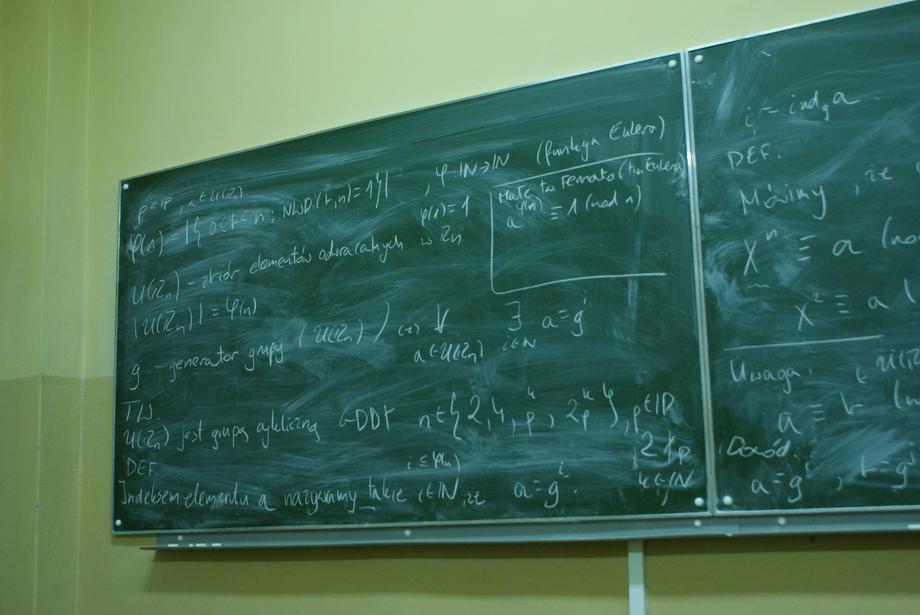 p ∈ IP, a ∈ U(Z_n)
φ(n) = |{ 0 ≤ t < n : NWD(t,n) = 1 }| , φ: IN → IN (funkcja Eulera)
φ(1) = 1
Małe tw. Fermata (tw. Eulera)
a^φ(n) ≡ 1 (mod n)
U(Z_n) - zbiór elementów odwracalnych w Z_n
|U(Z_n)| = φ(n)
g - generator grupy (U(Z_n)) ⇔ ∀ a∈U(Z_n) ∃ i∈IN a = g^i
TW.
U(Z_n) jest grupą cykliczną GDDY n ∈ {2, 4, p^k, 2p^k}, p ∈ IP
2∤p
k ∈ IN
DEF. i ≤ φ(n)
Indeksem elementu a nazywamy takie i ∈ IN, że a = g^i.
i = ind_g a
DEF.
Mówimy, że
x^n ≡ a
x^2 ≡ a
Uwaga.
a ≡
Dowód.
a = g^i ,